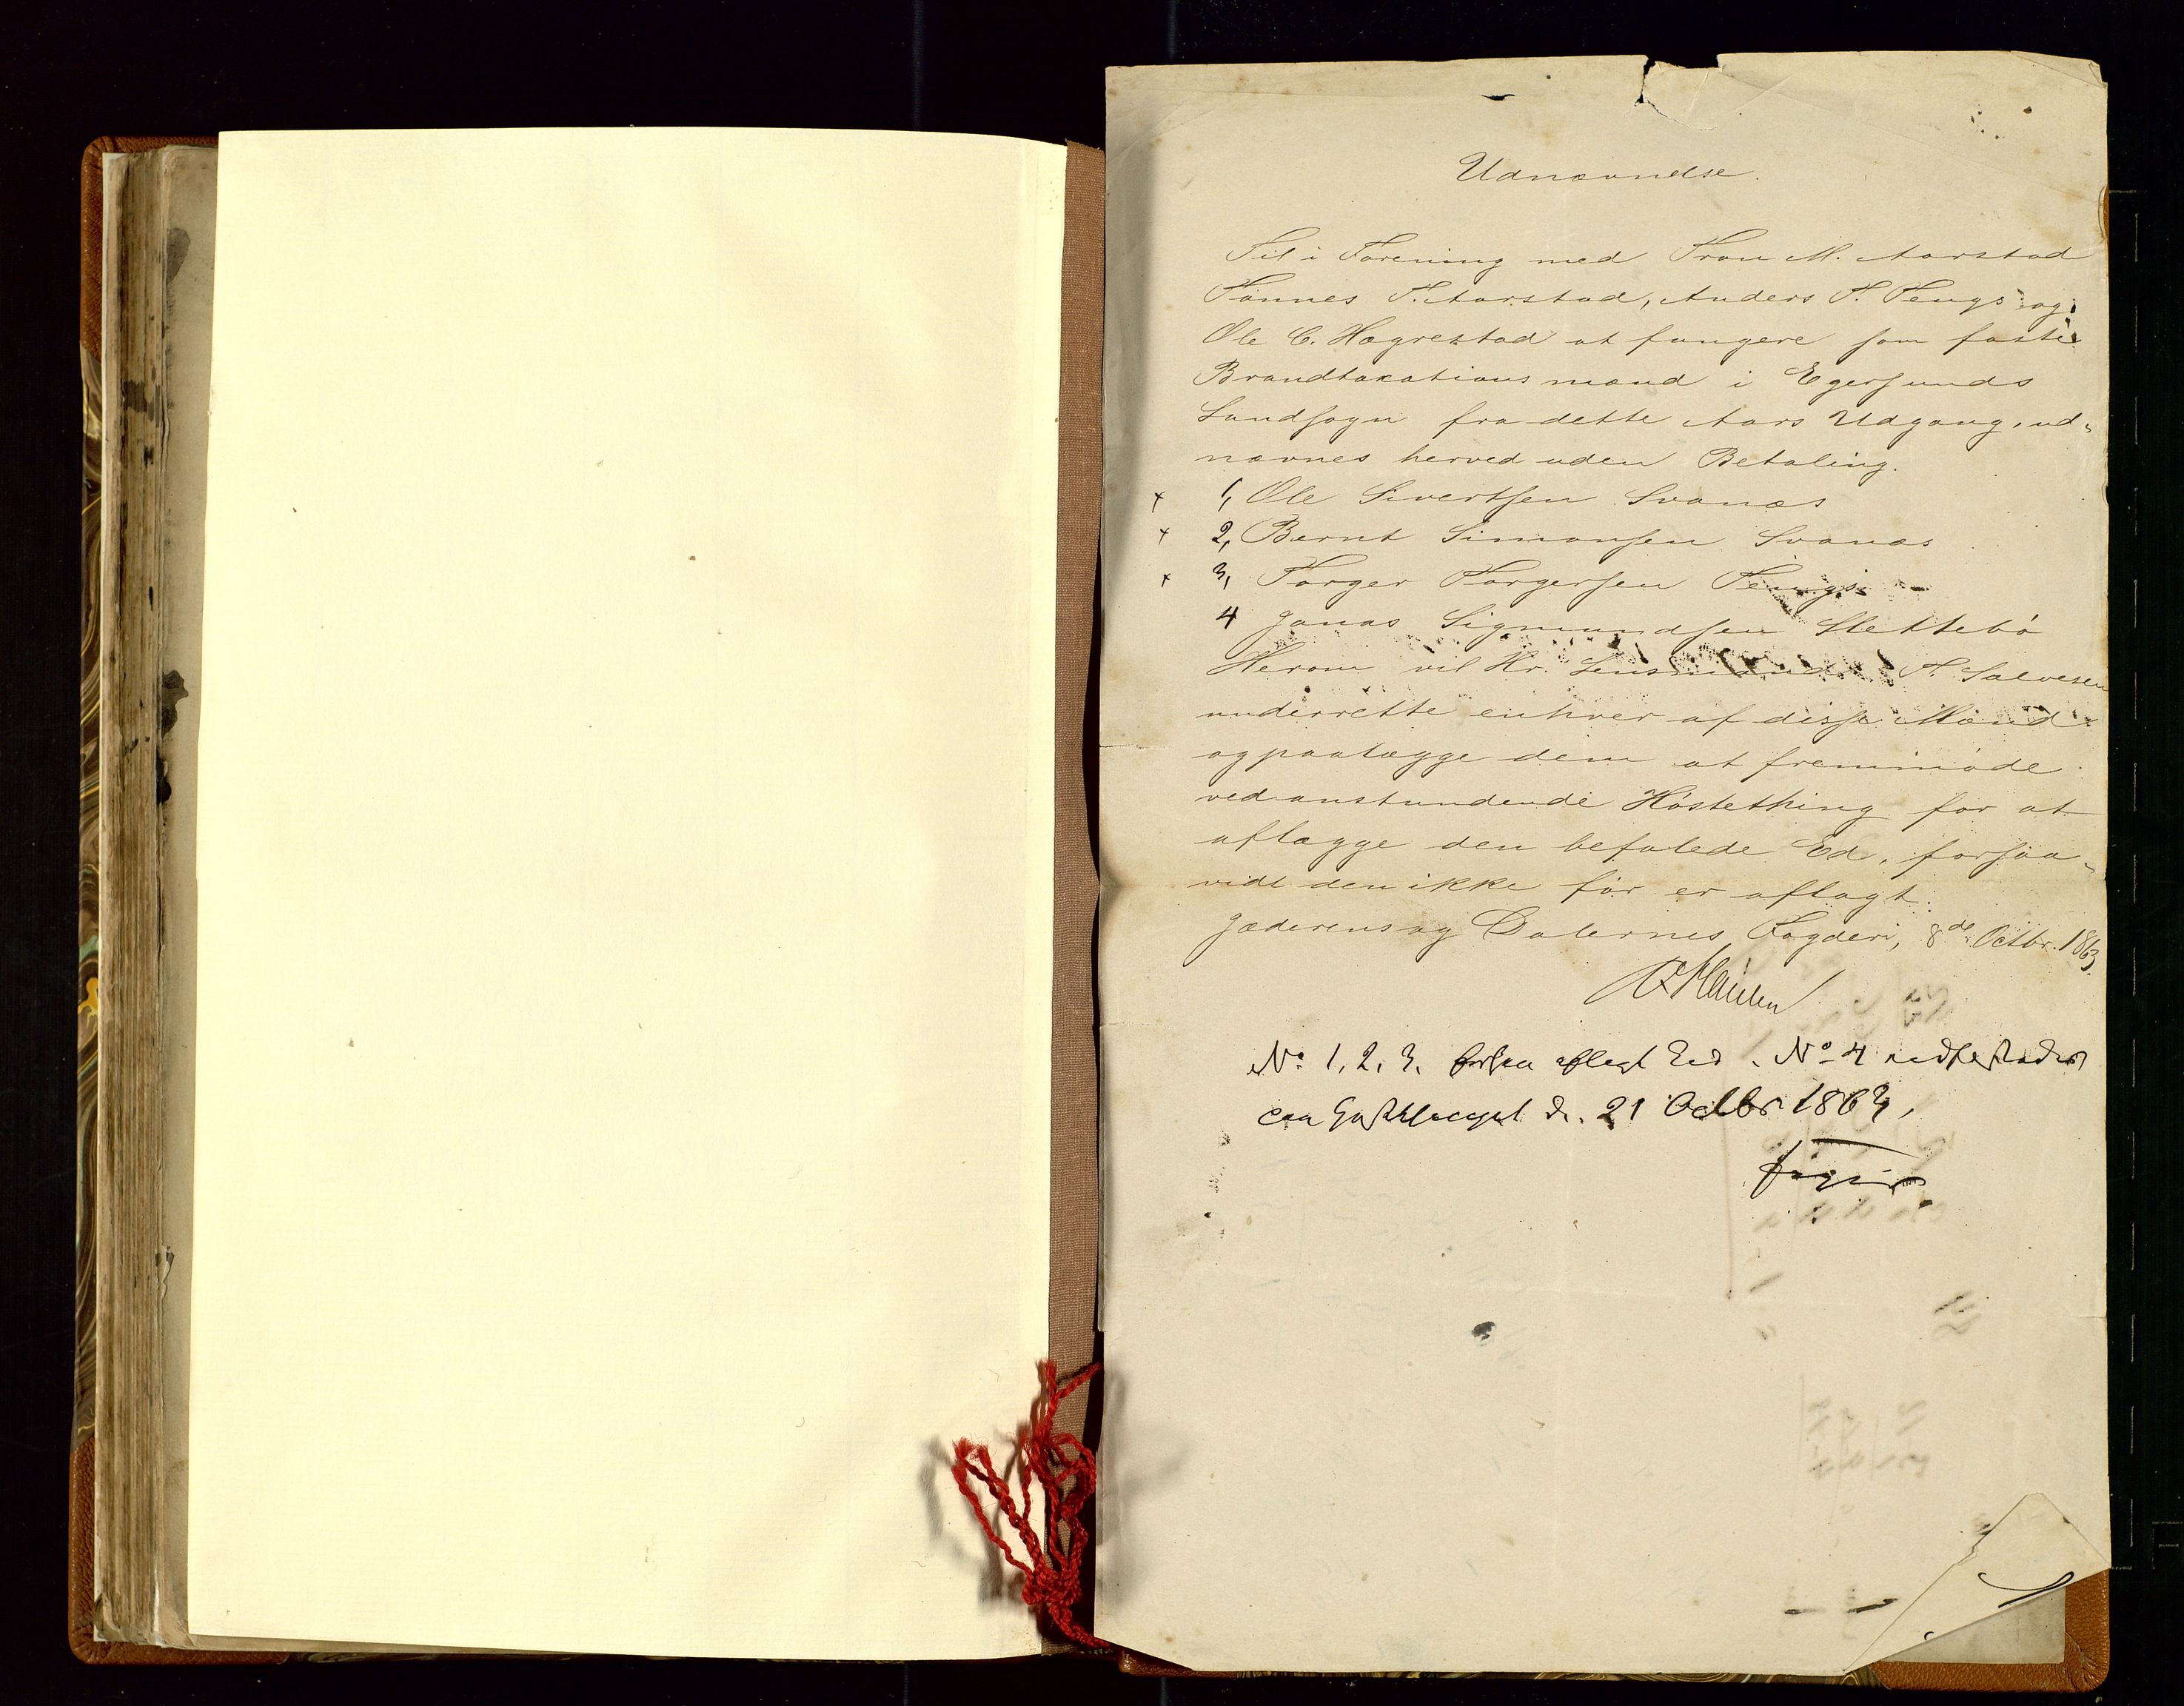 Udnævnelse.
Til i Forening med Tron M. Aarstad
Tønnes T. Aarstad, Anders T. Tengs og
Ole C. Hægrestad at fungere som faste
Brandtaxationsmænd i Egersunds
Landsogn fra dette Aars Udgang, ud„
nævnes herved uden Betaling.
x 1, Ole Sivertsen Svanæs
x 2, Bernt Simonsen Svanæs
x 3, Torger Torgersen Tengs
4 Jonas Sigmundsen Slettebø
Herom vil Hr. Lensmand T. Salvesen
underrette enhver af disse Mænd
og paalægge dem at fremmøde
ved anstundende Høstething for at
aflægge den befalede Ed, forsaa„
vidt den ikke før er aflagt.
Jæderens og Dalernes Fogderi, 8de Octbr. 1863
No 1, 2, 3. aflagt Ed. No 4
d. 21 Octbr 1863,